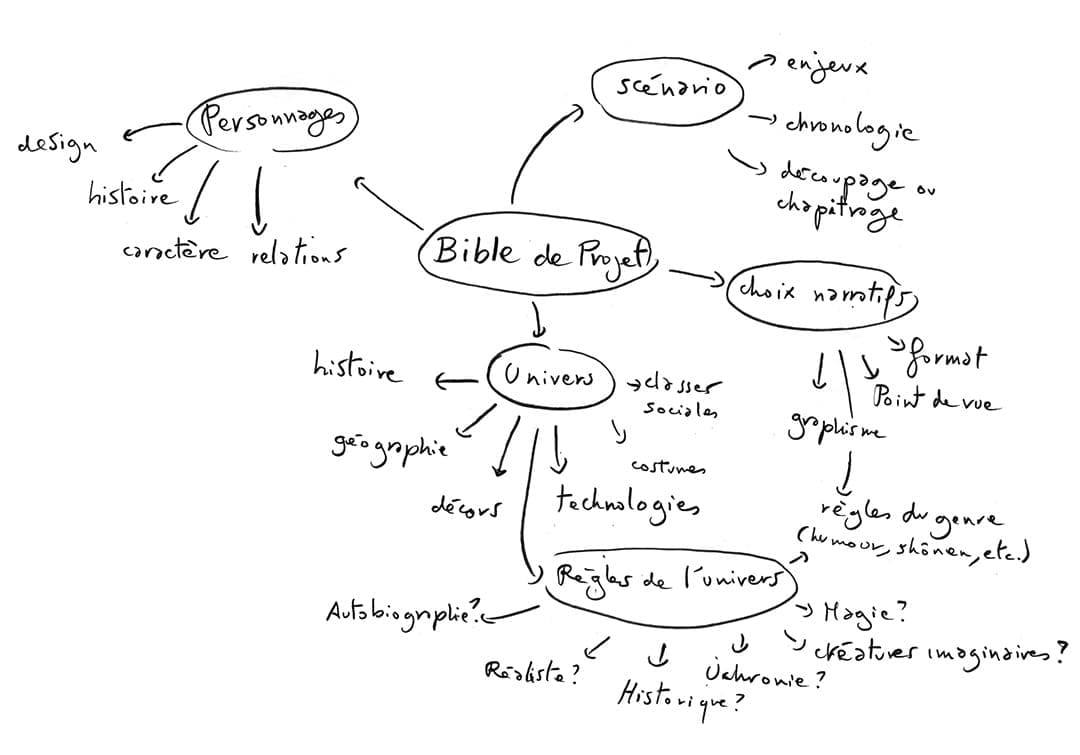 scénario
enjeux
chronologie
découpage ou
chapitrage
Personnages
design
histoire
caractère
relations
Bible de Projet
choix narratifs
format
Point de vue
graphisme
règles du genre
(humour, shônen, etc.)
Univers
histoire
géographie
décors
technologies
costumes
classes
sociales
Règles de l'univers
Autobiographie?
Réaliste?
Historique?
Uchronie?
créatures imaginaires?
Magie?